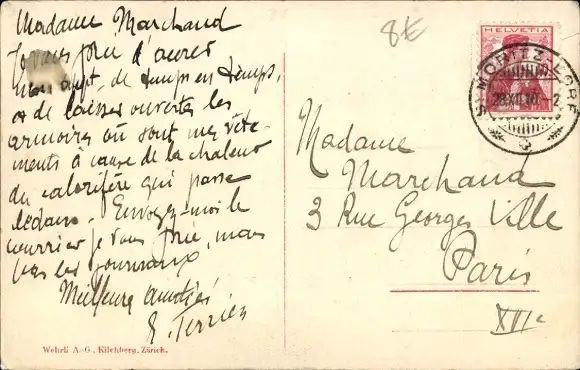 Madame Marchand
Je vous prie d'aérer
mon appt. de temps en temps,
et de laisser ouvertes les
armoires où sont mes vête-
ments à cause de la chaleur
du calorifère qui passe
dedans. Envoyez-moi le
courrier je vous prie, mais
pas les journaux
Meilleures amitiés
E. Terrien
Wehrli A.-G., Kilchberg, Zürich.
8€
HELVETIA
ST. MORITZ-DORF
28.XII.10.-2
Madame
Marchand
3 Rue Georges Ville
Paris
XVIe